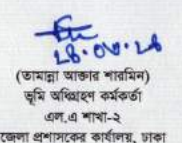 ২৪.০৩.২৪
(তামান্না আক্তার শারমিন)
ভূমি অধিগ্রহণ কর্মকর্তা
এল.এ শাখা-২
জেলা প্রশাসকের কার্যালয়, ঢাকা